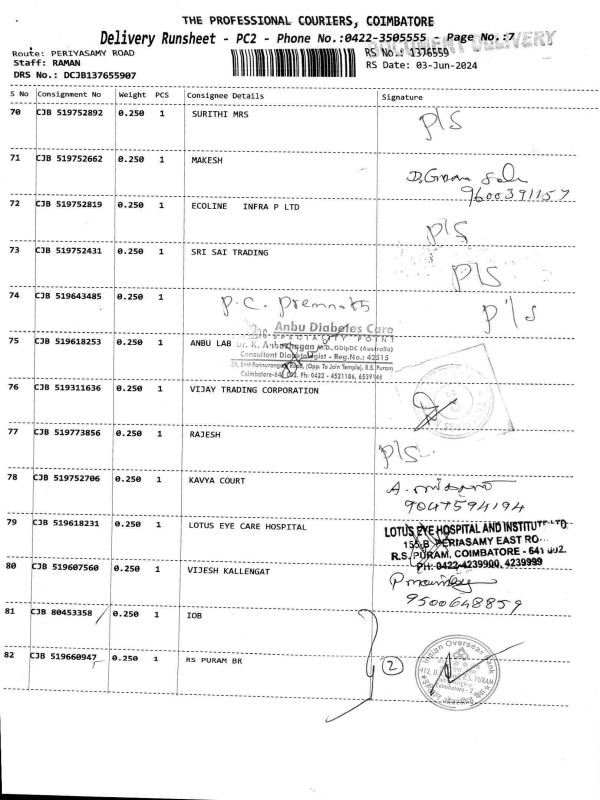 THE PROFESSIONAL COURIERS, COIMBATORE
Delivery Runsheet - PC2 - Phone No.:0422-3505555 - Page No.:7
DOCUMENT DELIVERY
Route: PERIYASAMY ROAD
RS No.: 1376559
Staff: RAMAN
RS Date: 03-Jun-2024
DRS No.: DCJB137655907
S No Consignment No Weight PCS Consignee Details Signature
70 CJB 519752892 0.250 1 SURITHI MRS P/S
71 CJB 519752662 0.250 1 MAKESH
9600391157
72 CJB 519752819 0.250 1 ECOLINE INFRA P LTD P/S
73 CJB 519752431 0.250 1 SRI SAI TRADING P/S
74 CJB 519643485 0.250 1 P.C. Premnath P/S
Anbu Diabetes Care
SPECIALITY POINT
75 CJB 519618253 0.250 1 ANBU LAB Dr. K. Anbazhagan M.D., GDipDC (Australia)
Consultant Diabetologist - Reg.No.: 42515
Road, (Opp. To Jain Temple), R.S. Puram
Coimbatore-641 002. Ph: 0422 - 4521186, 6539146
76 CJB 519311636 0.250 1 VIJAY TRADING CORPORATION
77 CJB 519773856 0.250 1 RAJESH P/S
78 CJB 519752706 0.250 1 KAVYA COURT
9047594194
79 CJB 519618231 0.250 1 LOTUS EYE CARE HOSPITAL
LOTUS EYE HOSPITAL AND INSTITUTE LTD
155-B PERIASAMY EAST RO
R.S. PURAM, COIMBATORE - 641 002.
PH: 0422-4239900, 4239999
80 CJB 519607560 0.250 1 VIJESH KALLENGAT
9500648859
81 CJB 80453358 0.250 1 IOB
82 CJB 519660947 0.250 1 RS PURAM BR 2
Indian Overseas Bank
R.S. PURAM
Coimbatore - 2